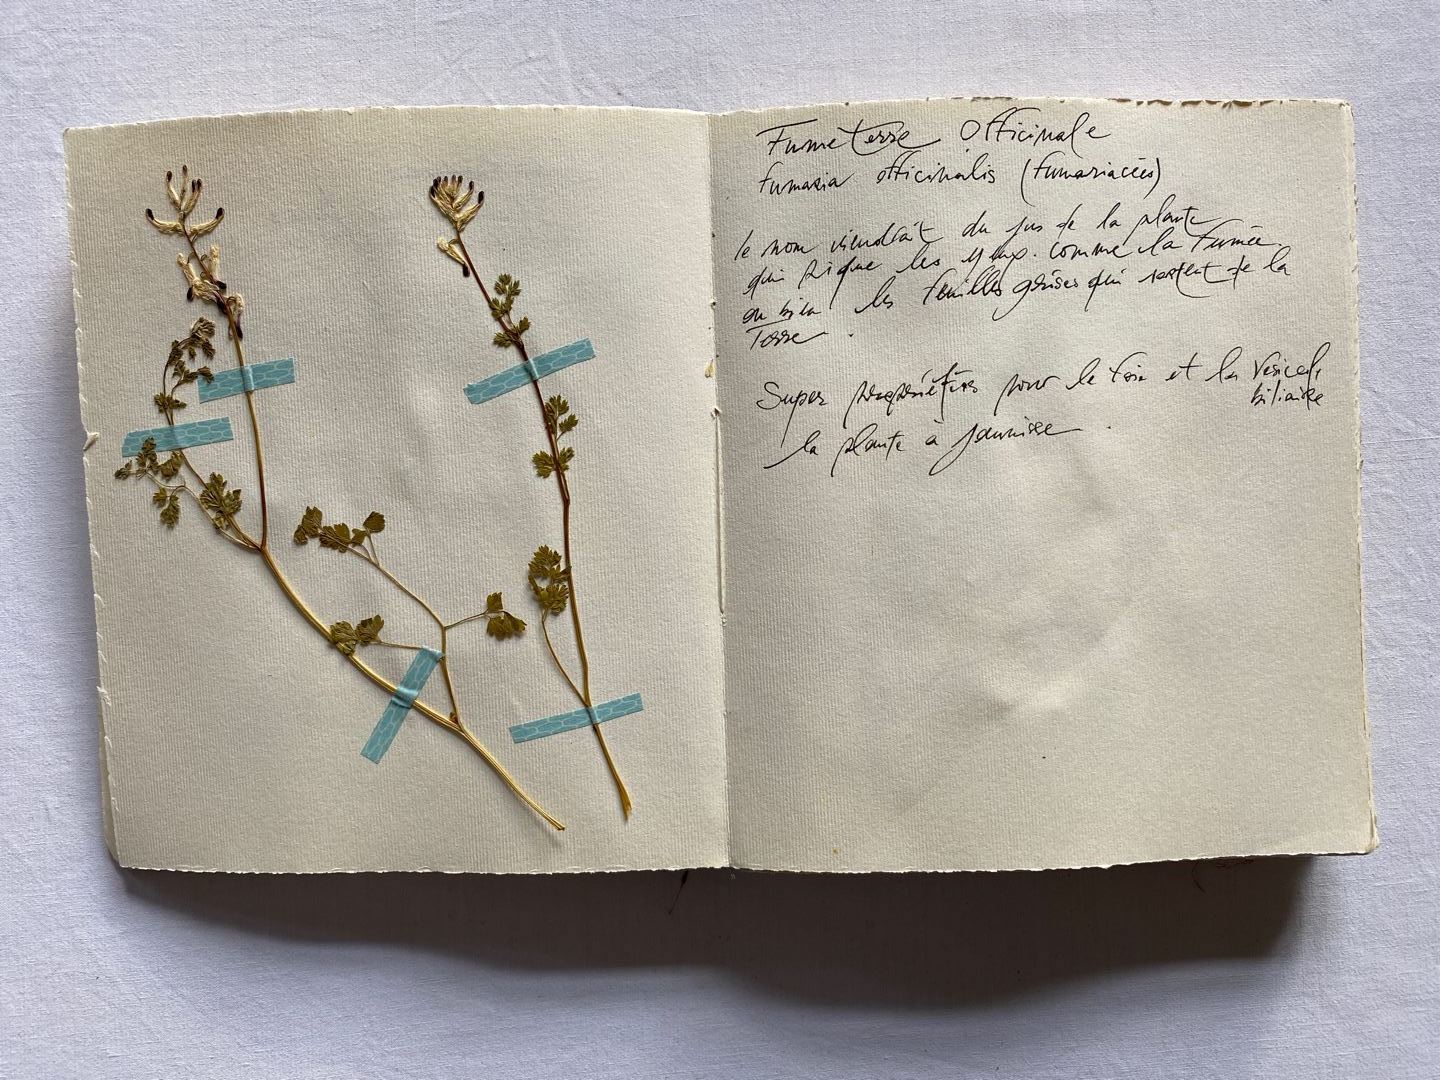 Fumeterre Officinale
fumaria officinalis (fumariacées)
le nom viendrait du jus de la plante
qui pique les yeux comme la fumée
ou bien les feuilles grises qui sortent de la
Terre.
Super propriétés pour le foie et la vésicule
biliaire
la plante à jaunisse.